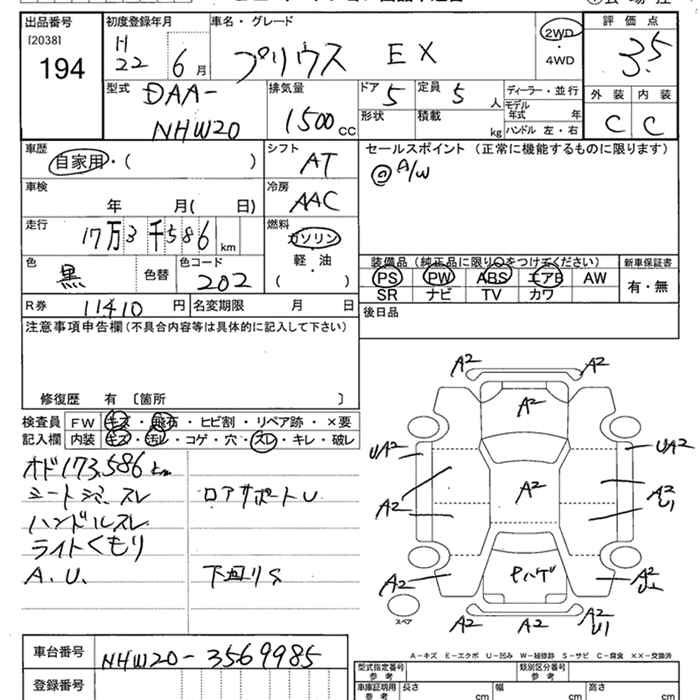 出品番号 初度登録年月 車名・グレード 評価点
[2038] H
194 22 6月 プリウス EX 2WD ・ 4WD 3.5
型式 DAA-NHW20 排気量 1500 CC ドア 5 定員 5 人 ディーラー・並行
形状 積載 kg モデル年式 年
ハンドル 左・右
外装 内装
C C
車歴 自家用・( ) シフト AT セールスポイント (正常に機能するものに限ります)
◎ A/W
車検 年 月( 日) 冷房 AAC
走行 17万3千586 km 燃料 ガソリン
軽・油
( )
色 黒 色替 色コード 202
装備品(純正品に限り○をつけてください) 新車保証書
PS PW ABS エアB AW 有・無
SR ナビ TV カワ
R券 11410 円 名変期限 月 日
後日品
注意事項申告欄(不具合内容等は具体的に記入して下さい)
修復歴 有 〔箇所 〕
検査員 FW キズ・飛石・ヒビ割・リペア跡・×要
記入欄 内装 キズ・汚レ・コゲ・穴・スレ・キレ・破レ
オド173,586km
シートシミ、スレ ロアサポートU
ハンドルスレ
ライトくもり
A.U. 下回りS
A2 A2
A2
UA2 UA2
A2 A2 A2
U1
A2 ヒハゲ A2
U1
スペア
A2 A2 A2
U1
A-キズ E-エクボ U-凹み W-補修跡 S-サビ C-腐食 ××-交換済
車台番号 NHW20-3569985
登録番号
型式指定番号 参考 類別区分番号 参考
車庫証明用 参考 長さ cm 幅 cm 高さ cm